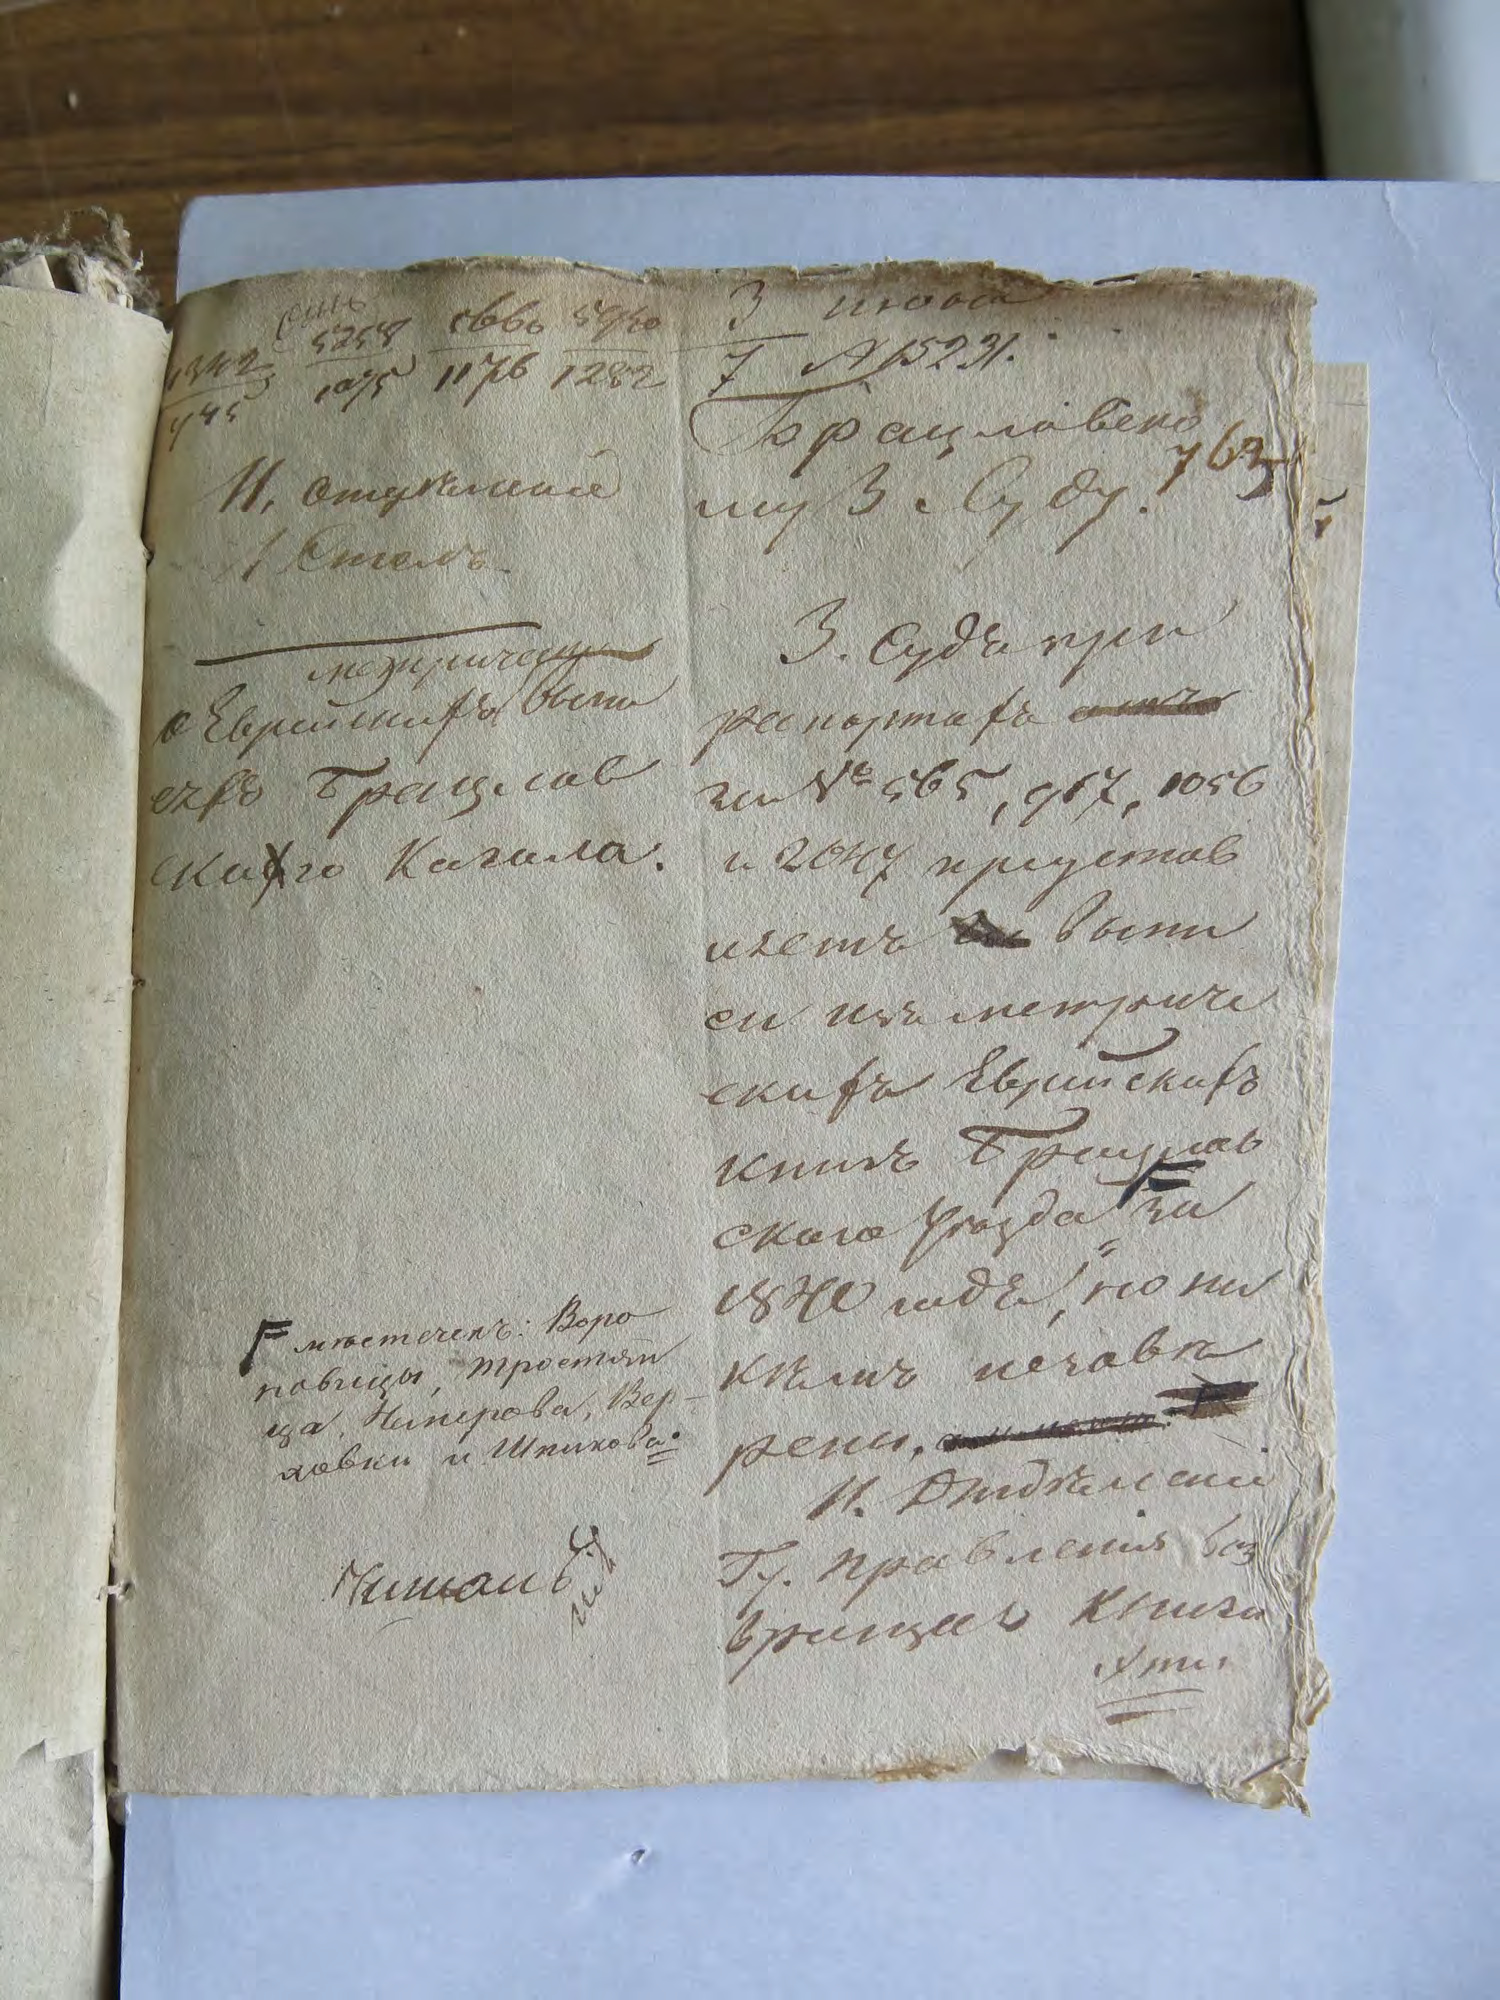 1342 5258 5660 5950
745 1075 1176 1282
II. отделение
1 Столъ
метрическ
о Еврейскихъ выпи
схъ Брацлав
скаго Кагала.
мѣстечекъ: Воро
новицы, Тростян
ца, Чичерова, Вер-
ховки и Шпикова.
Читалъ
3 июля
7 № 15231.
Брацлавско
му З. Суду.
763
З. Судъ при
рапортахъ
за № 565, 917, 1056
и 2047 представ
ляетъ выпи
си изъ метриче
скихъ Еврейскихъ
книгъ Брацлав
скаго уѣзда за
1840 годъ, но ни
кѣмъ незавѣ
рены.
II. Отдѣленіе
Гу. Правленія воз
вращаетъ книги